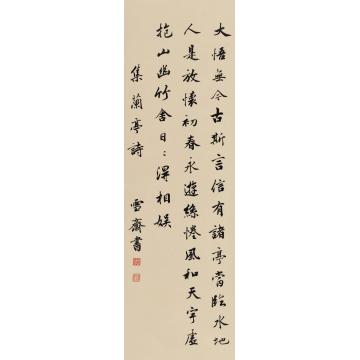 大悟無今古斯言信有諸亭當臨水地
人是放懷初春永遊絲惓風和天宇虛
抱山幽竹舍日〻得相娛
集蘭亭詩
雪齋書